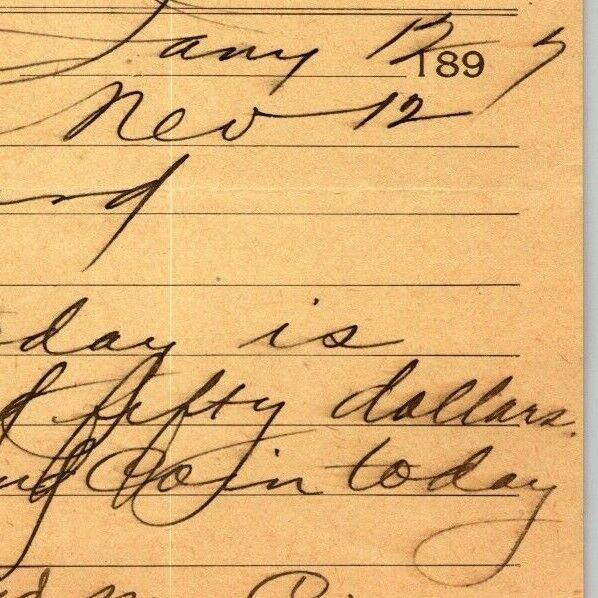 Jany 12 1897
Nev 12
nd
day is
d fifty dollars.
nd Coin today